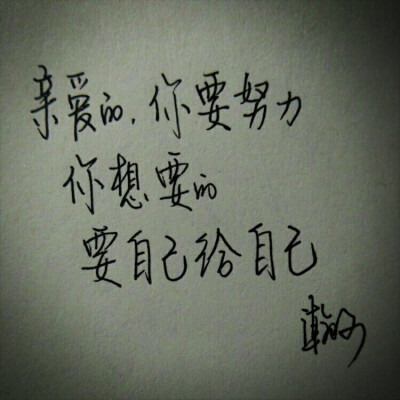 亲爱的，你要努力
你想要的
要自己给自己